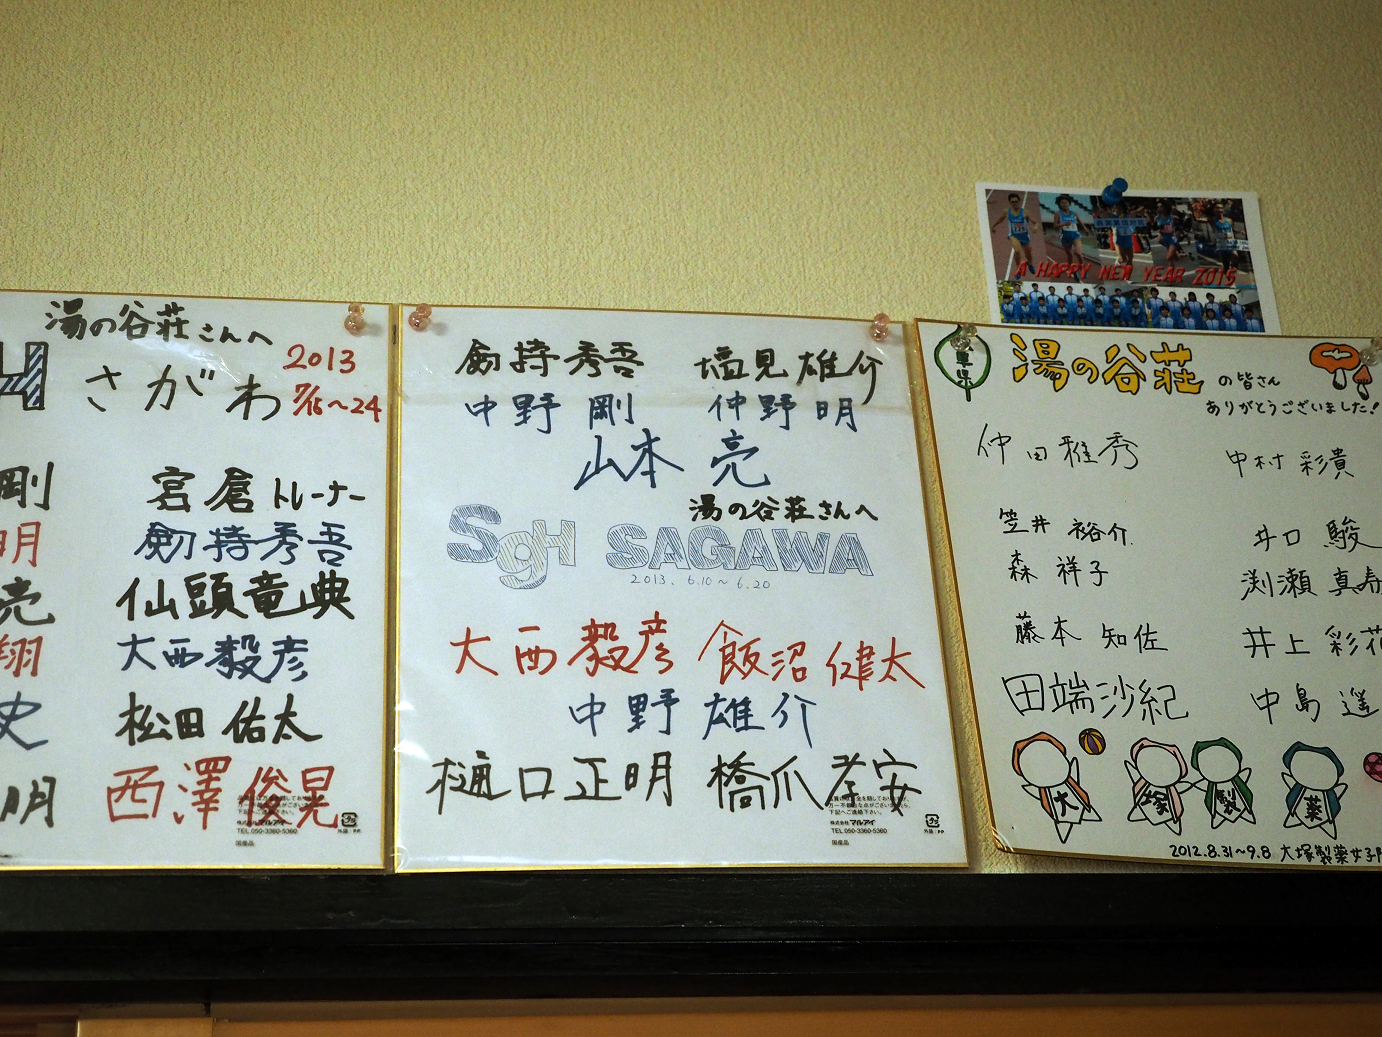 A HAPPY NEW YEAR 2015
湯の谷荘さんへ
H さがわ
2013
7/16～24
剛 宮倉トレーナー
明 劔持秀吾
亮 仙頭竜典
翔 大西毅彦
史 松田佑太
明 西澤俊晃
株式会社マルアイ
TEL.050-3360-5360
国産品
劔持秀吾 塩見雄介
中野 剛 仲野 明
山本 亮
湯の谷荘さんへ
SgH SAGAWA
2013. 6.10～6.20
大西毅彦 飯沼健太
中野雄介
樋口正明 橋爪孝安
株式会社マルアイ
TEL.050-3360-5360
国産品
湯の谷荘の皆さん
ありがとうございました!
仲田雅秀 中村 彩貴
笠井 裕介 井口 駿
森 祥子 渕瀬 真寿
藤本 知佐 井上 彩花
田端沙紀 中島 遥
大塚製薬
2012.8.31～9.8 大塚製薬女子